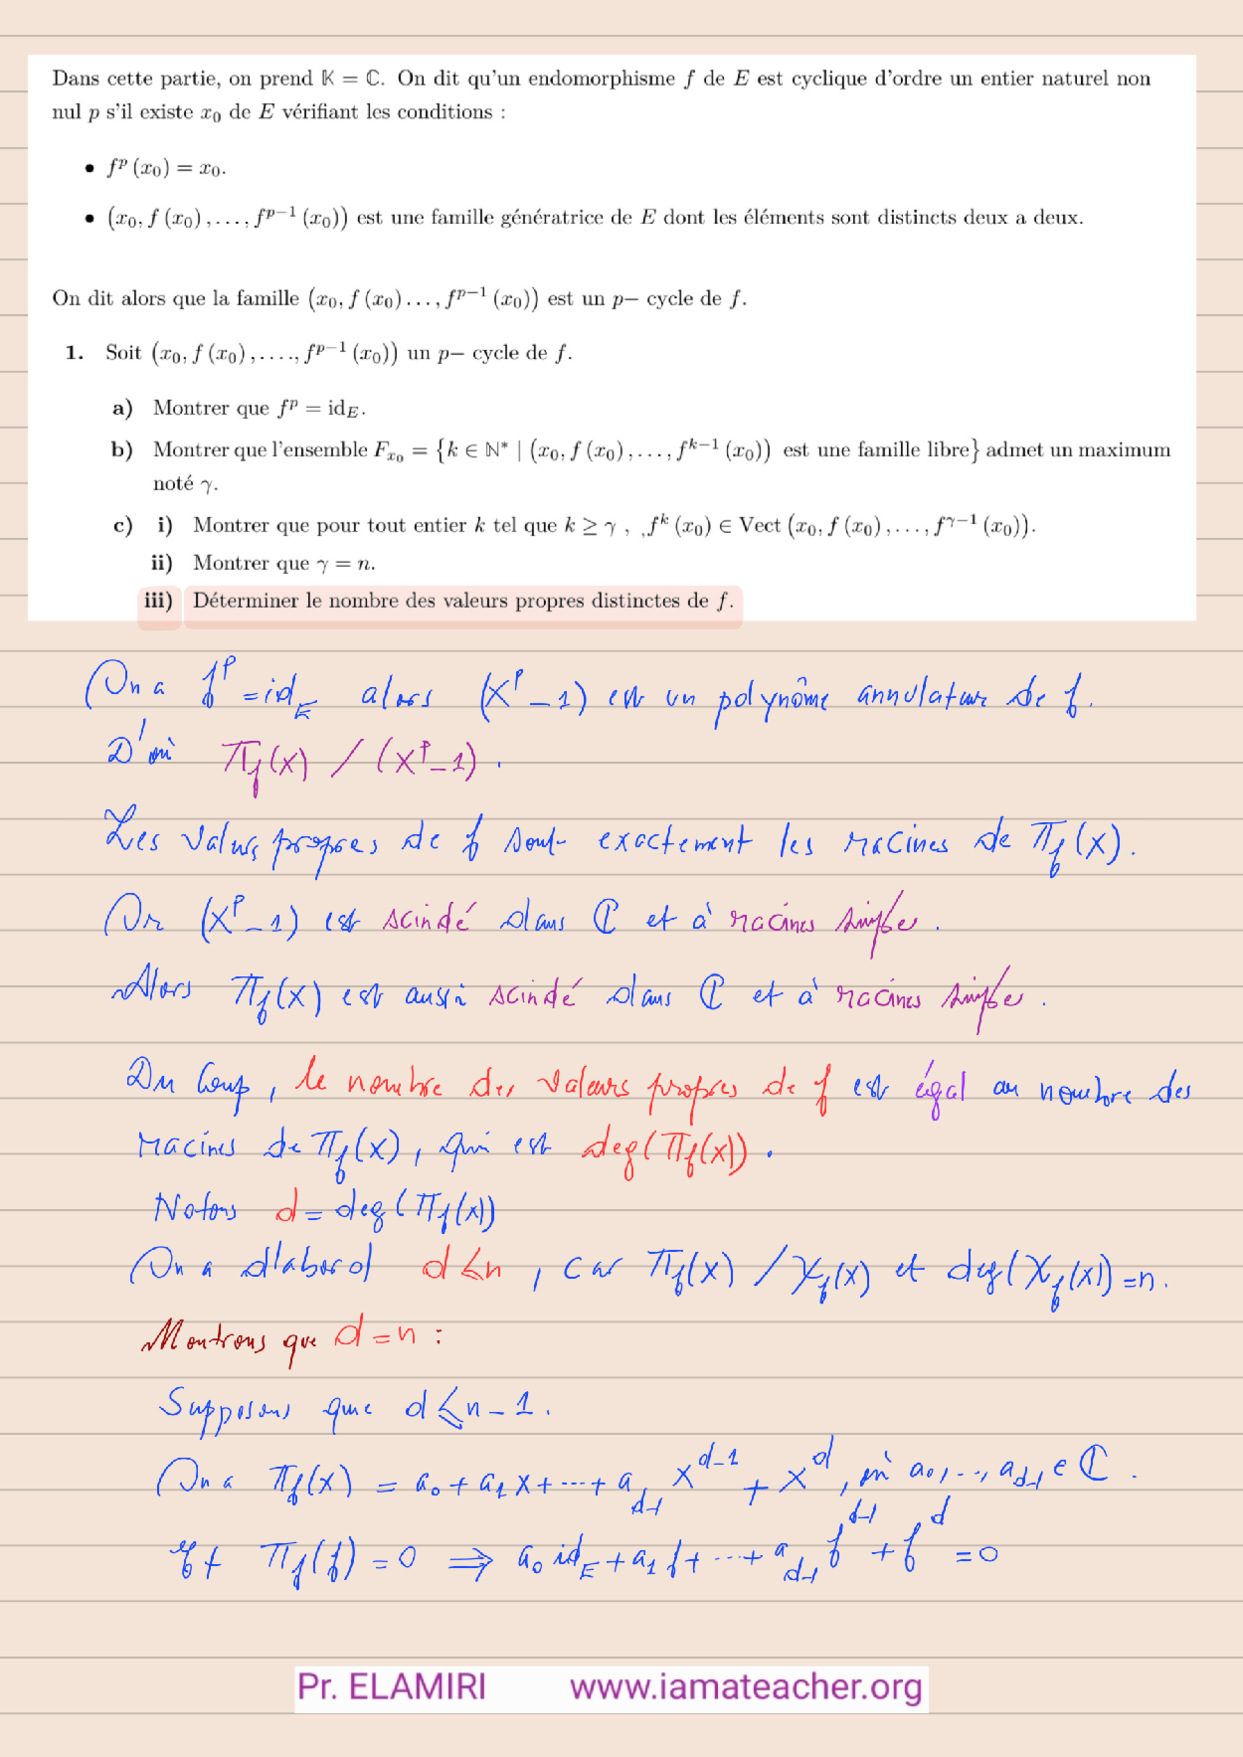 Dans cette partie, on prend 𝕂 = ℂ. On dit qu'un endomorphisme f de E est cyclique d'ordre un entier naturel non
nul p s'il existe x₀ de E vérifiant les conditions :
• fᵖ (x₀) = x₀.
• (x₀, f (x₀), . . . , fᵖ⁻¹ (x₀)) est une famille génératrice de E dont les éléments sont distincts deux a deux.
On dit alors que la famille (x₀, f (x₀) . . . , fᵖ⁻¹ (x₀)) est un p− cycle de f.
1. Soit (x₀, f (x₀), . . . ., fᵖ⁻¹ (x₀)) un p− cycle de f.
a) Montrer que fᵖ = id_E.
b) Montrer que l'ensemble F_{x₀} = {k ∈ ℕ* | (x₀, f (x₀), . . . , fᵏ⁻¹ (x₀)) est une famille libre} admet un maximum
noté γ.
c) i) Montrer que pour tout entier k tel que k ≥ γ , ,fᵏ (x₀) ∈ Vect (x₀, f (x₀), . . . , f^{γ−1} (x₀)).
ii) Montrer que γ = n.
iii) Déterminer le nombre des valeurs propres distinctes de f.
On a fᵖ = id_E alors (Xᵖ − 1) est un polynôme annulateur de f.
D'où Π_f(X) / (Xᵖ − 1).
Les valeurs propres de f sont exactement les racines de Π_f(X).
Or (Xᵖ − 1) est scindé dans ℂ et à racines simples.
Alors Π_f(X) est aussi scindé dans ℂ et à racines simples.
Du coup, le nombre des valeurs propres de f est égal au nombre des
racines de Π_f(X), qui est deg(Π_f(X)).
Notons d = deg(Π_f(X))
On a d'abord d ≤ n, car Π_f(X) / χ_f(X) et deg(χ_f(X)) = n.
Montrons que d = n :
Supposons que d ≤ n − 1.
On a Π_f(X) = a₀ + a₁X + ··· + a_{d-1} X^{d-1} + X^d, où a₀, ..., a_{d-1} ∈ ℂ.
Et Π_f(f) = 0 ⟹ a₀ id_E + a₁ f + ··· + a_{d-1} f^{d-1} + f^d = 0
Pr. ELAMIRI www.iamateacher.org